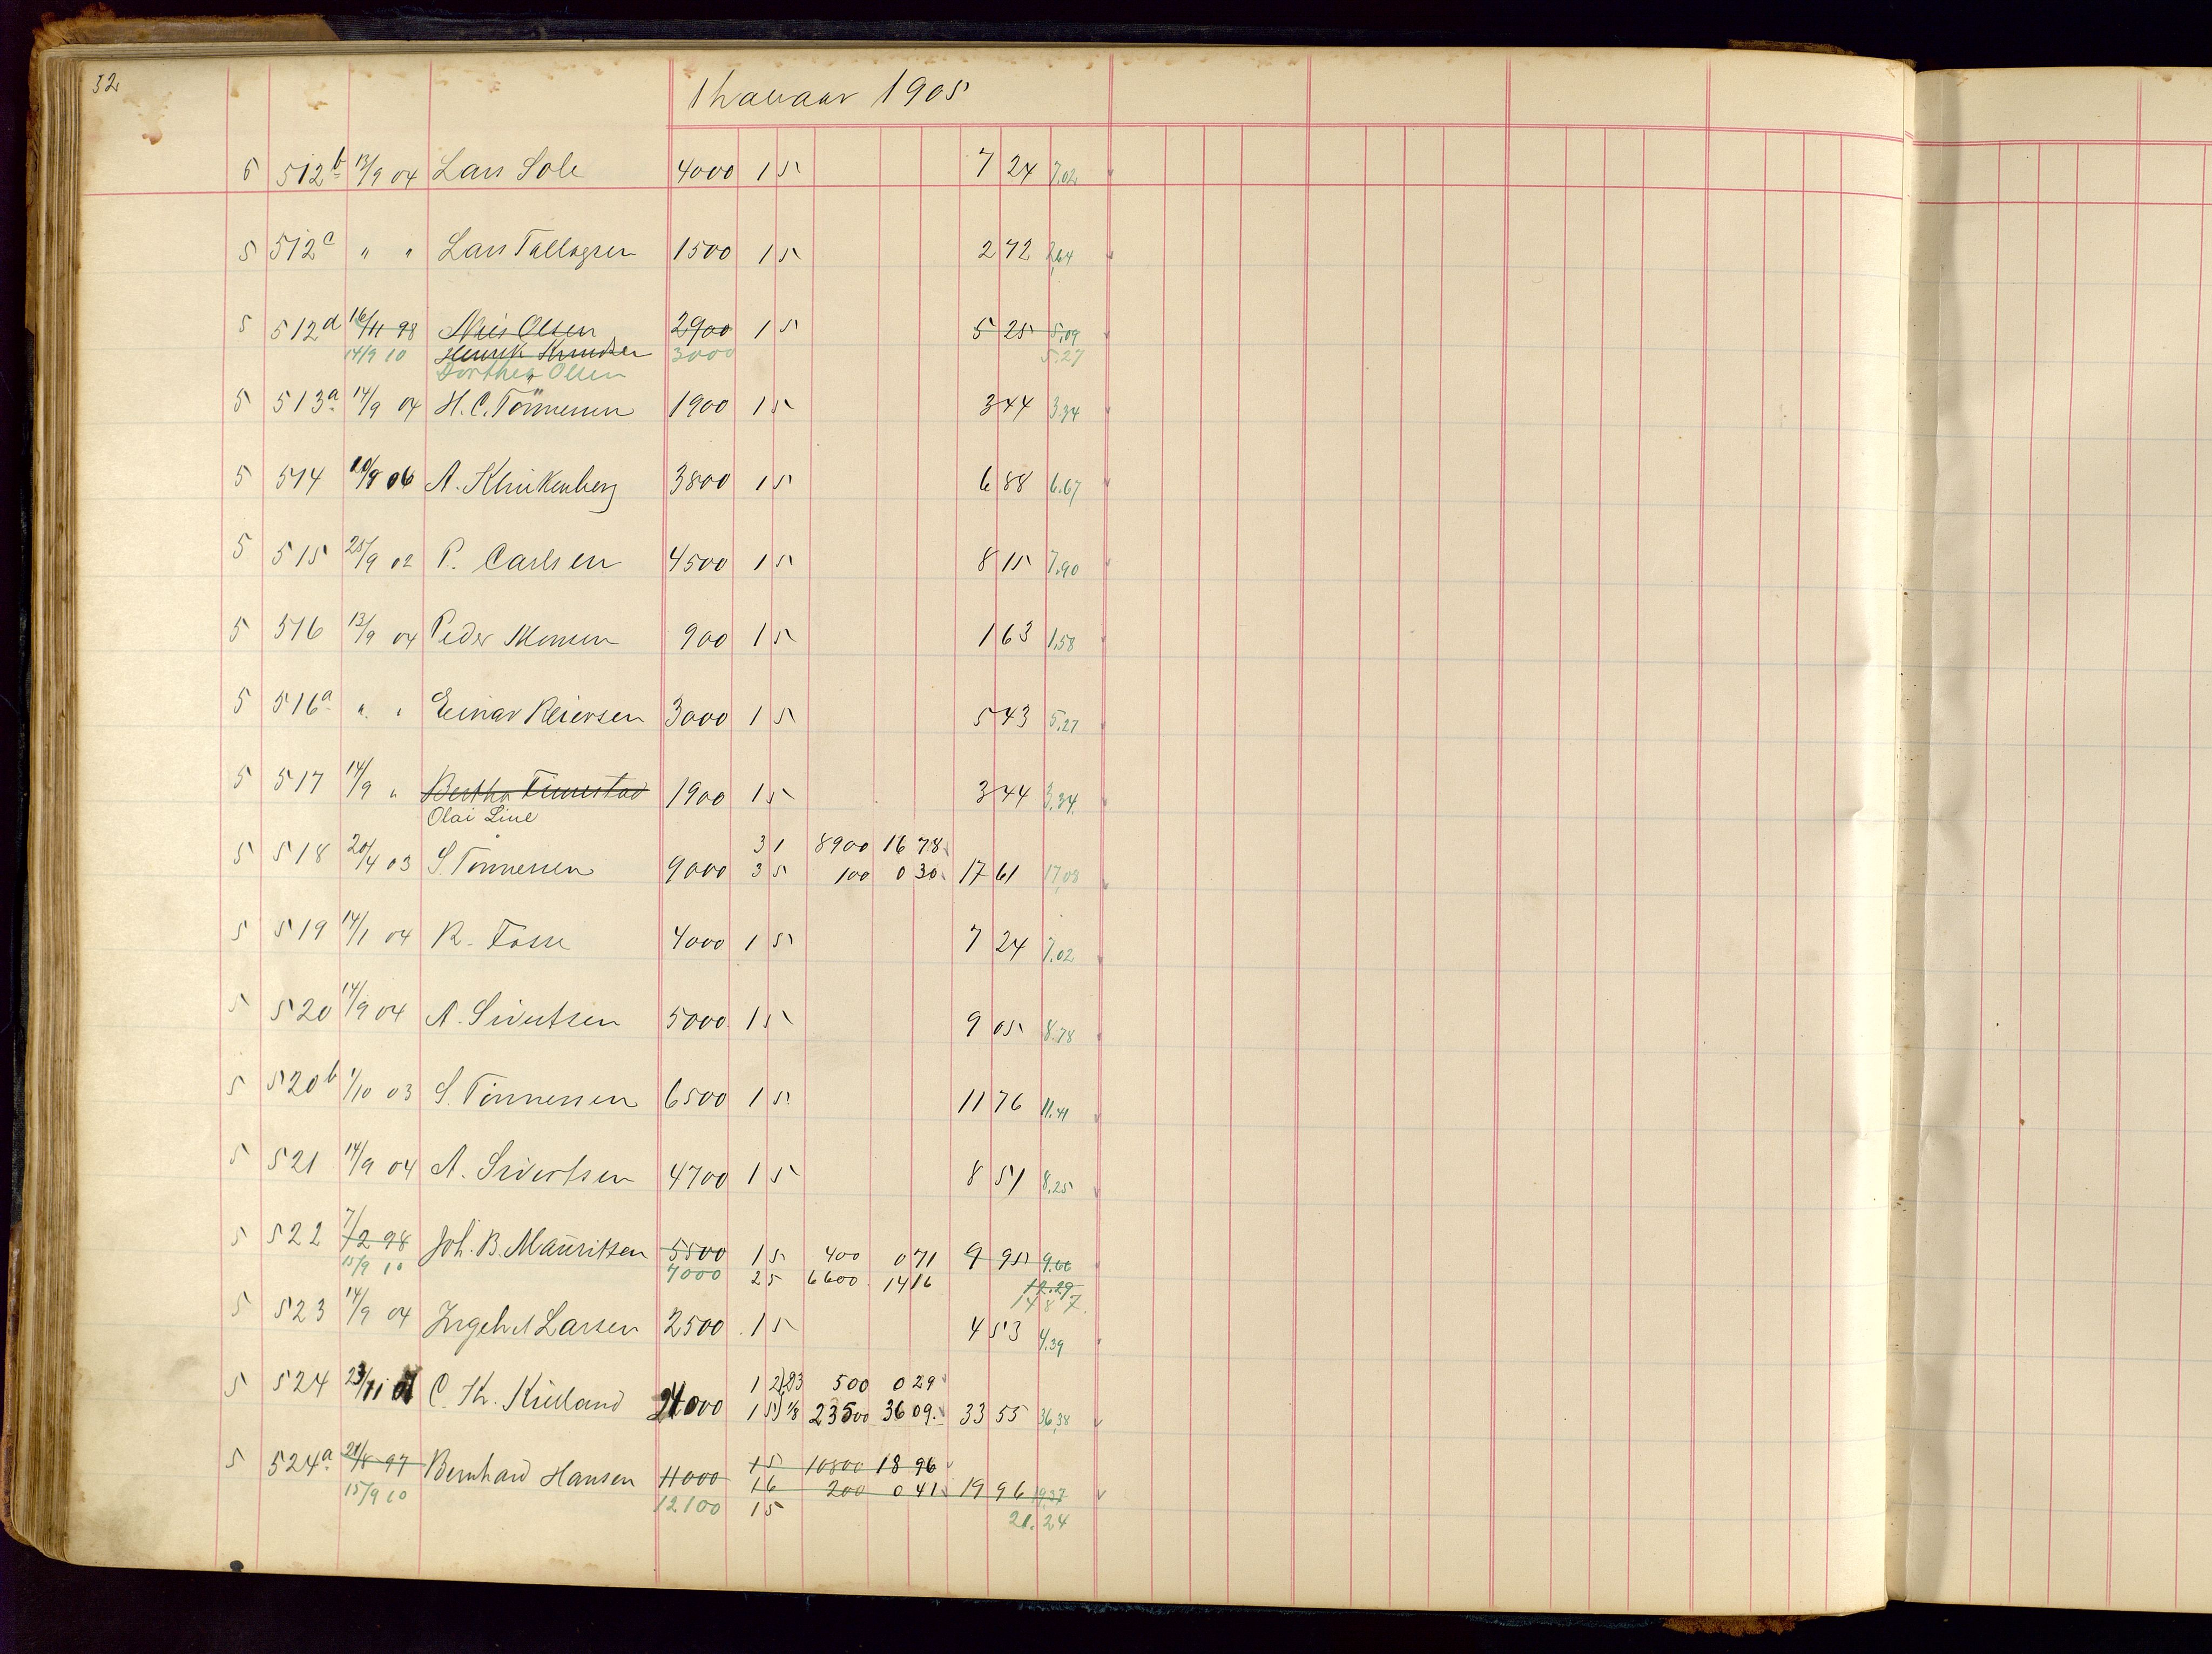 32
1 Januar 1905
5 512b 13/9 04 Lars Sole 4000 1 5 7 24 7.02
5 512c " " Lars Tallagsen 1500 1 5 2 72 2.64
5 512d 16/11 98 Nils Olsen 2900 1 5 5 25 5.09
14/9 10 Henrik Knudsen 3000 5.27
Dorthea Olsen
5 513a 14/9 04 H. C. Tönnesen 1900 1 5 3 44 3.34
5 514 10/9 06 A. Klinkenberg 3800 1 5 6 88 6.67
5 515 25/9 02 P. Carlsen 4500 1 5 8 15 7.90
5 516 13/9 04 Peder Monsen 900 1 5 1 63 1.58
5 516a " " Einar Reiersen 3000 1 5 5 43 5.27
5 517 14/9 " Bertha Finnestad 1900 1 5 3 44 3.34
Olai Line
3 1 8900 16 78
5 518 20/4 03 S. Tönnessen 9000 3 5 100 0 30 17 61 17,08
5 519 14/1 04 R. Fosse 4000 1 5 7 24 7.02
5 520 14/9 04 A. Sivertsen 5000 1 5 9 05 8.78
5 520b 1/10 03 S. Tönnessen 6500 1 5 11 76 11.41
5 521 14/9 04 A. Sivertsen 4700 1 5 8 51 8.25
5 522 7/2 98 Joh. B. Mauritsen 5500 1 5 400 0 71 9 95 9.66
15/9 10 7000 2 5 6600 14 16 12.29
14 8 7.
5 523 14/9 04 Ingebret Larsen 2500 1 5 4 53 4.39
1 2 2/3 500 0 29
5 524 23/11 07 C. Th. Kielland 24000 1 5 1/8 23500 36 09 33 55 36,38
1 5 10800 18 96
5 524a 21/8 97 Bernhard Hansen 11000 1 6 200 0 41 19 96 19.37
15/9 10 12100 1 5 21.24